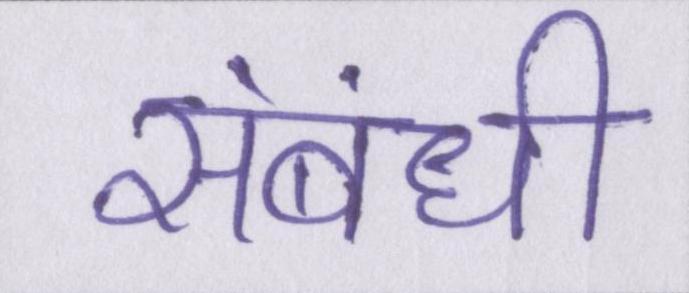 संबंधी